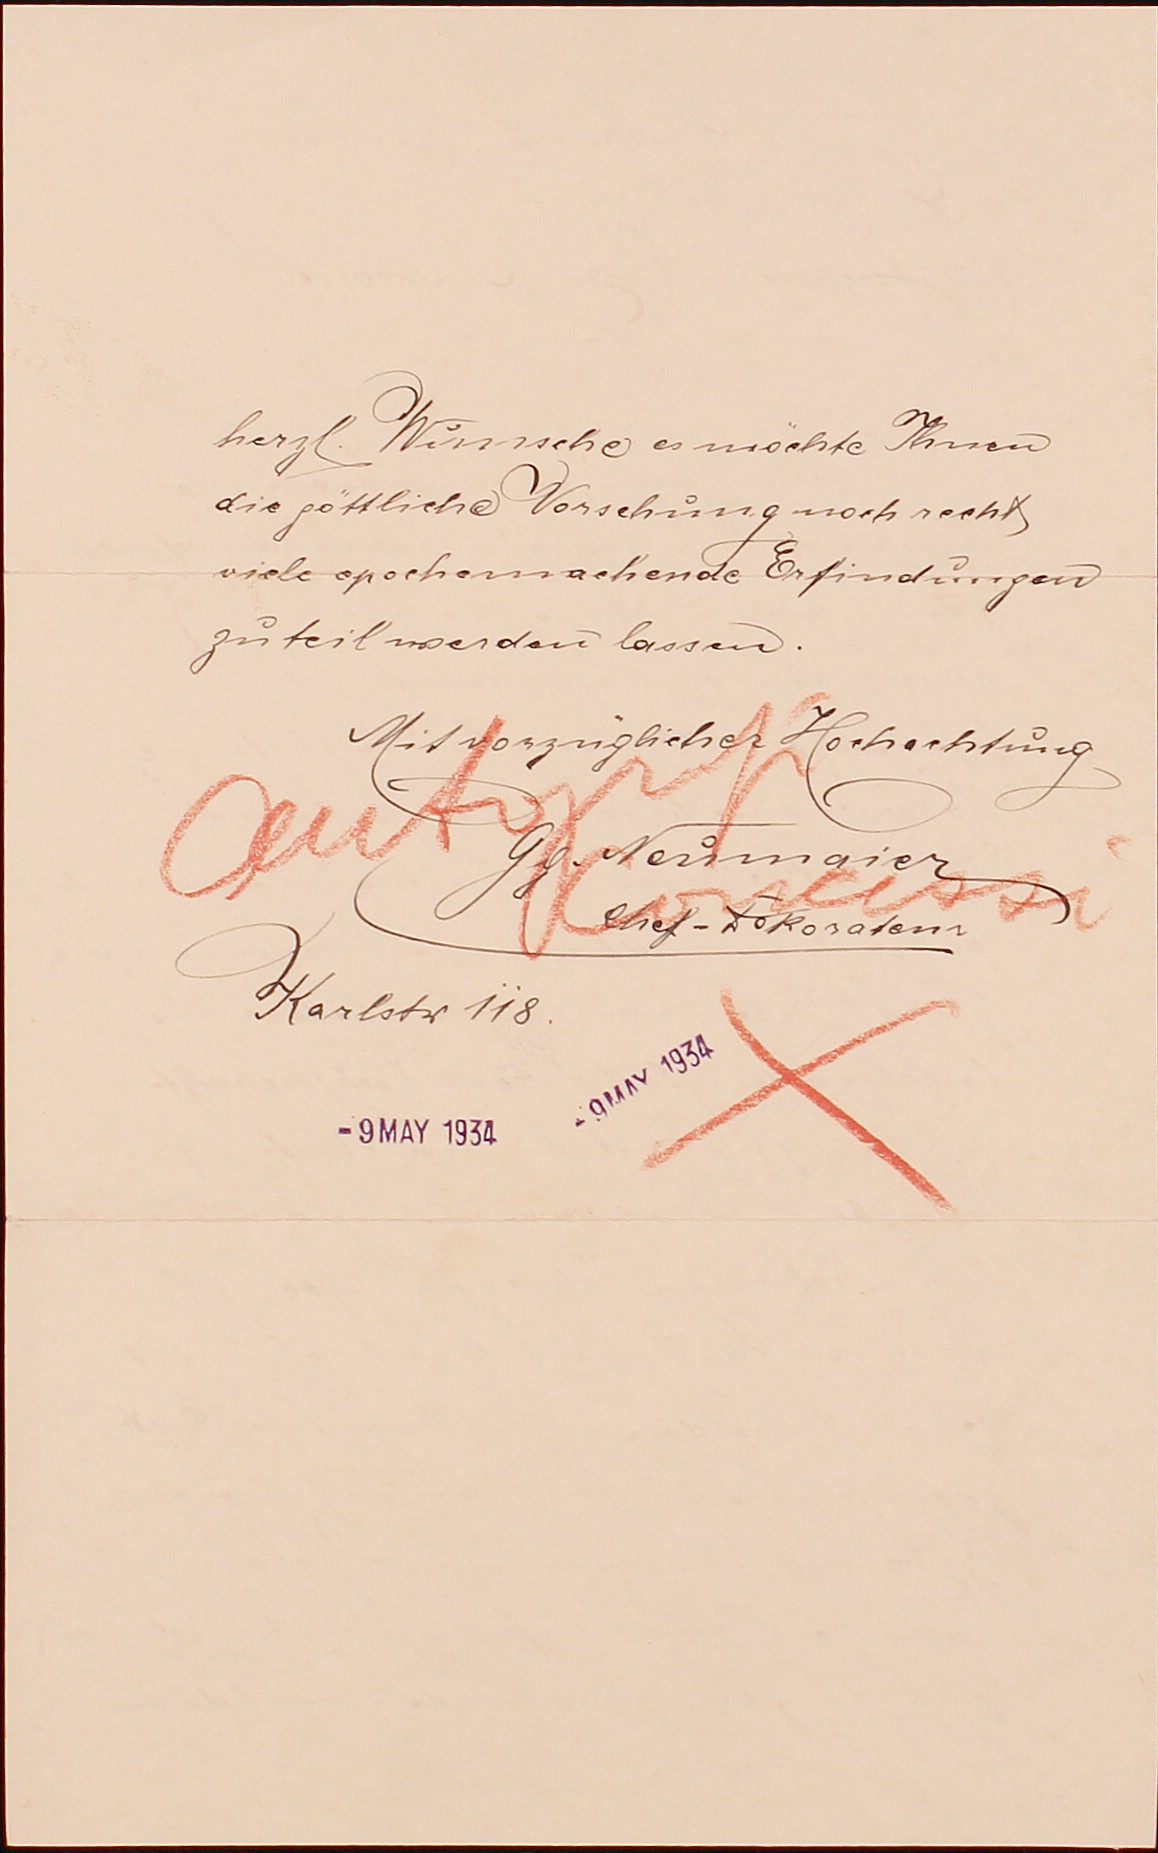 herzl. Wünsche es möchte Ihnen
die göttliche Vorsehung noch recht
viele epochemachende Erfindungen
zuteil werden lassen.
Mit vorzüglicher Hochachtung
Gg. Neumaier
Chef-Dekorateur
Karlstr 118.
-9 MAY 1934
-9 MAY 1934